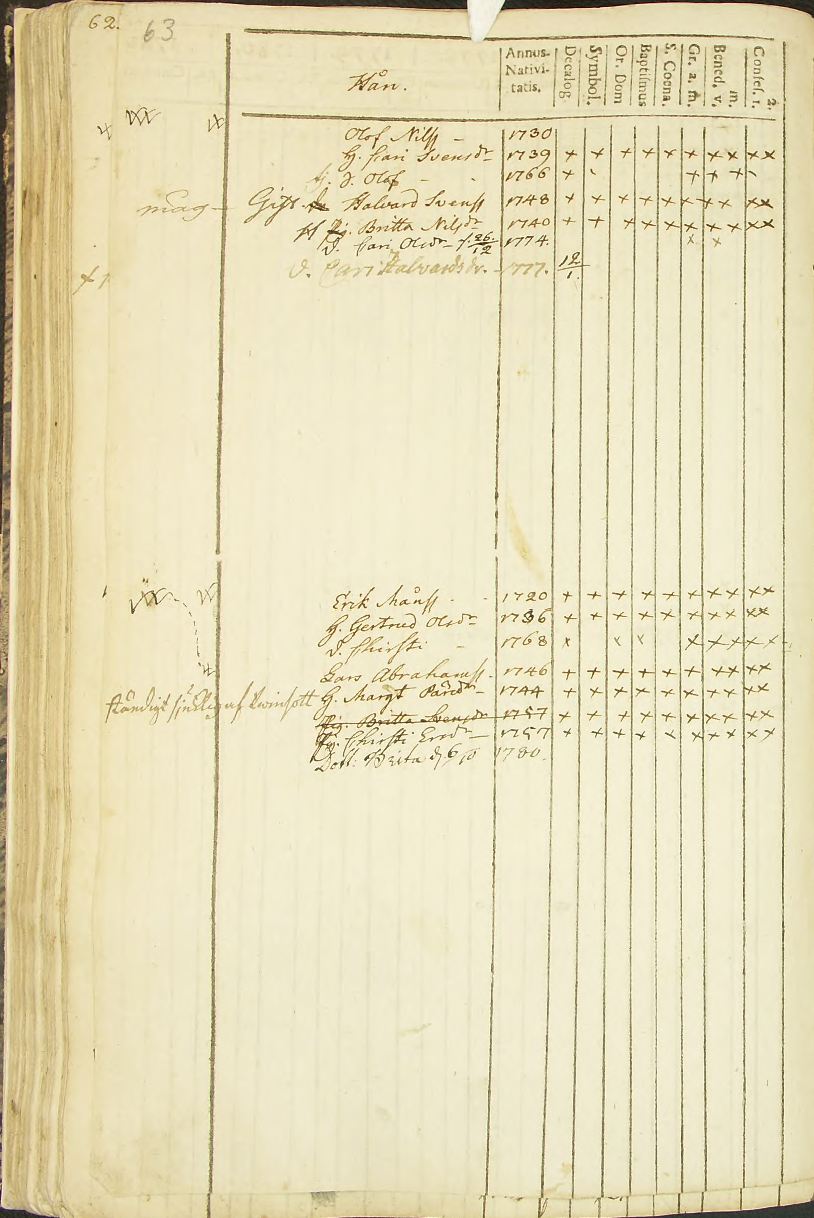 62. 63
Hån.
Annus Nativi-tatis.
Decalog
Symbol.
Or. Dom
Baptismus
S. Coena.
Gr. a. m.
Bened. v. m.
Confes. 1. 2.
Olof Nilss - 1730
H. Cari Svensdr 1739 + + + + + + + + + +
d. Olof - - 1766 +
Gift Halvard Svenss 1748 + + + + + + + + + +
Pig. Britta Nilsdr 1740 + + + + + + + + + +
D. Cari Olsdr f. 26/12 1774.
D. Cari Halvardsdr. - 1777. 12/1.
Erik Månss - - 1720 + + + + + + + + + +
H. Gertrud Olsdr 1736 + + + + + + + + + +
D. Chirsti - 1768
Lars Abrahamss. - 1746 + + + + + + + + + +
ständigt af H. Margt 1744 + + + + + + + + + +
Pig. Britta Svensdr 1757 + + + + + + + + + +
Pig. Chirsti Ersdr 1757 + + + + + + + + + +
Dott: Brita d. 6 1780.